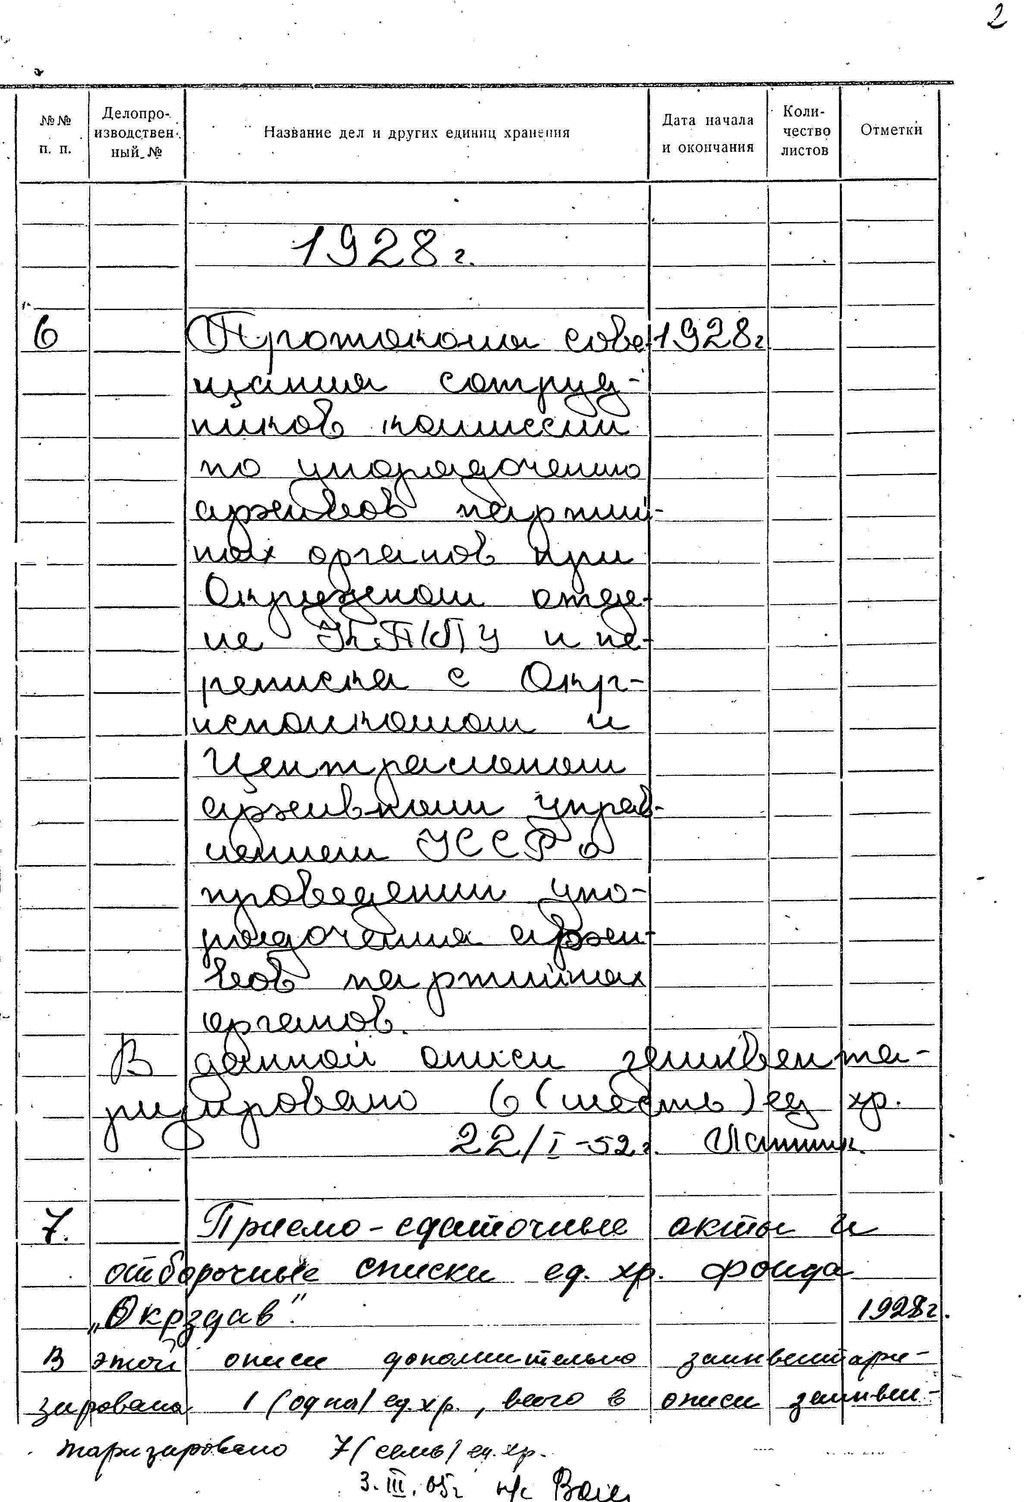 2
№№ п. п.
Делопро-изводствен-ный №
Название дел и других единиц хранения
Дата начала и окончания
Коли-чество листов
Отметки
1928 г.
6 Протоколы сове- 1928 г
щания сотруд-
ников комиссии
по упорядочению
архивов партий-
ных органов при
Окружном отде-
ле и пе-
реписка с Окр-
исполкомом и
Центральным
архивным управ-
лением УССР о
проведении упо-
рядочения архи-
вов партийных
органов.
В данной описи заинвента-
ризировано 6 (шесть) ед хр.
22/I-52 г.
7. Приемо-сдаточные акты и
отборочные списки ед. хр. фонда
„Окрздав". 1928 г.
В этой описи дополнительно заинвентари-
зирована 1 (одна) ед. хр., всего в описи заинвен-
таризировано 7 (семь) ед. хр.
3. III. 05 г